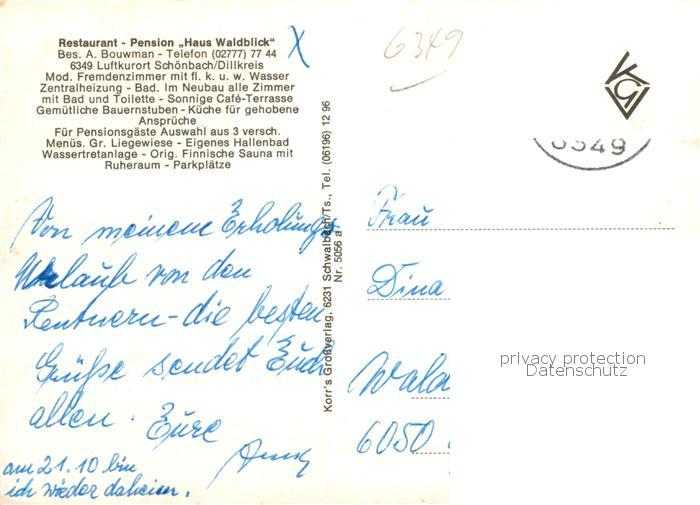 Restaurant - Pension „Haus Waldblick"
Bes. A. Bouwman - Telefon (02777) 77 44
6349 Luftkurort Schönbach/Dillkreis
Mod. Fremdenzimmer mit fl. k. u. w. Wasser
Zentralheizung - Bad. Im Neubau alle Zimmer
mit Bad und Toilette - Sonnige Café-Terrasse
Gemütliche Bauernstuben - Küche für gehobene
Ansprüche
Für Pensionsgäste Auswahl aus 3 versch.
Menüs. Gr. Liegewiese - Eigenes Hallenbad
Wassertretanlage - Orig. Finnische Sauna mit
Ruheraum - Parkplätze
X
6349
KGV
6349
Von meinem Erholungs
Urlaub von den
Rentnern - die besten
Grüße sendet Euch
allen. Eure
am 21.10 bin
ich wieder daheim.
Korr's Großverlag, 6231 Schwalbach/Ts., Tel. (06196) 12 96
Nr. 5056 a
Frau
Dina
Wald
6050
privacy protection
Datenschutz